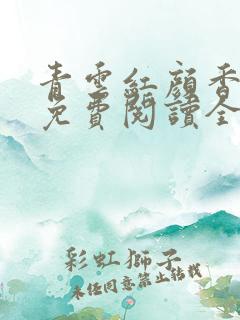 青雲紅顏香
免費閱讀全
彩虹獅子
未經同意禁止轉載